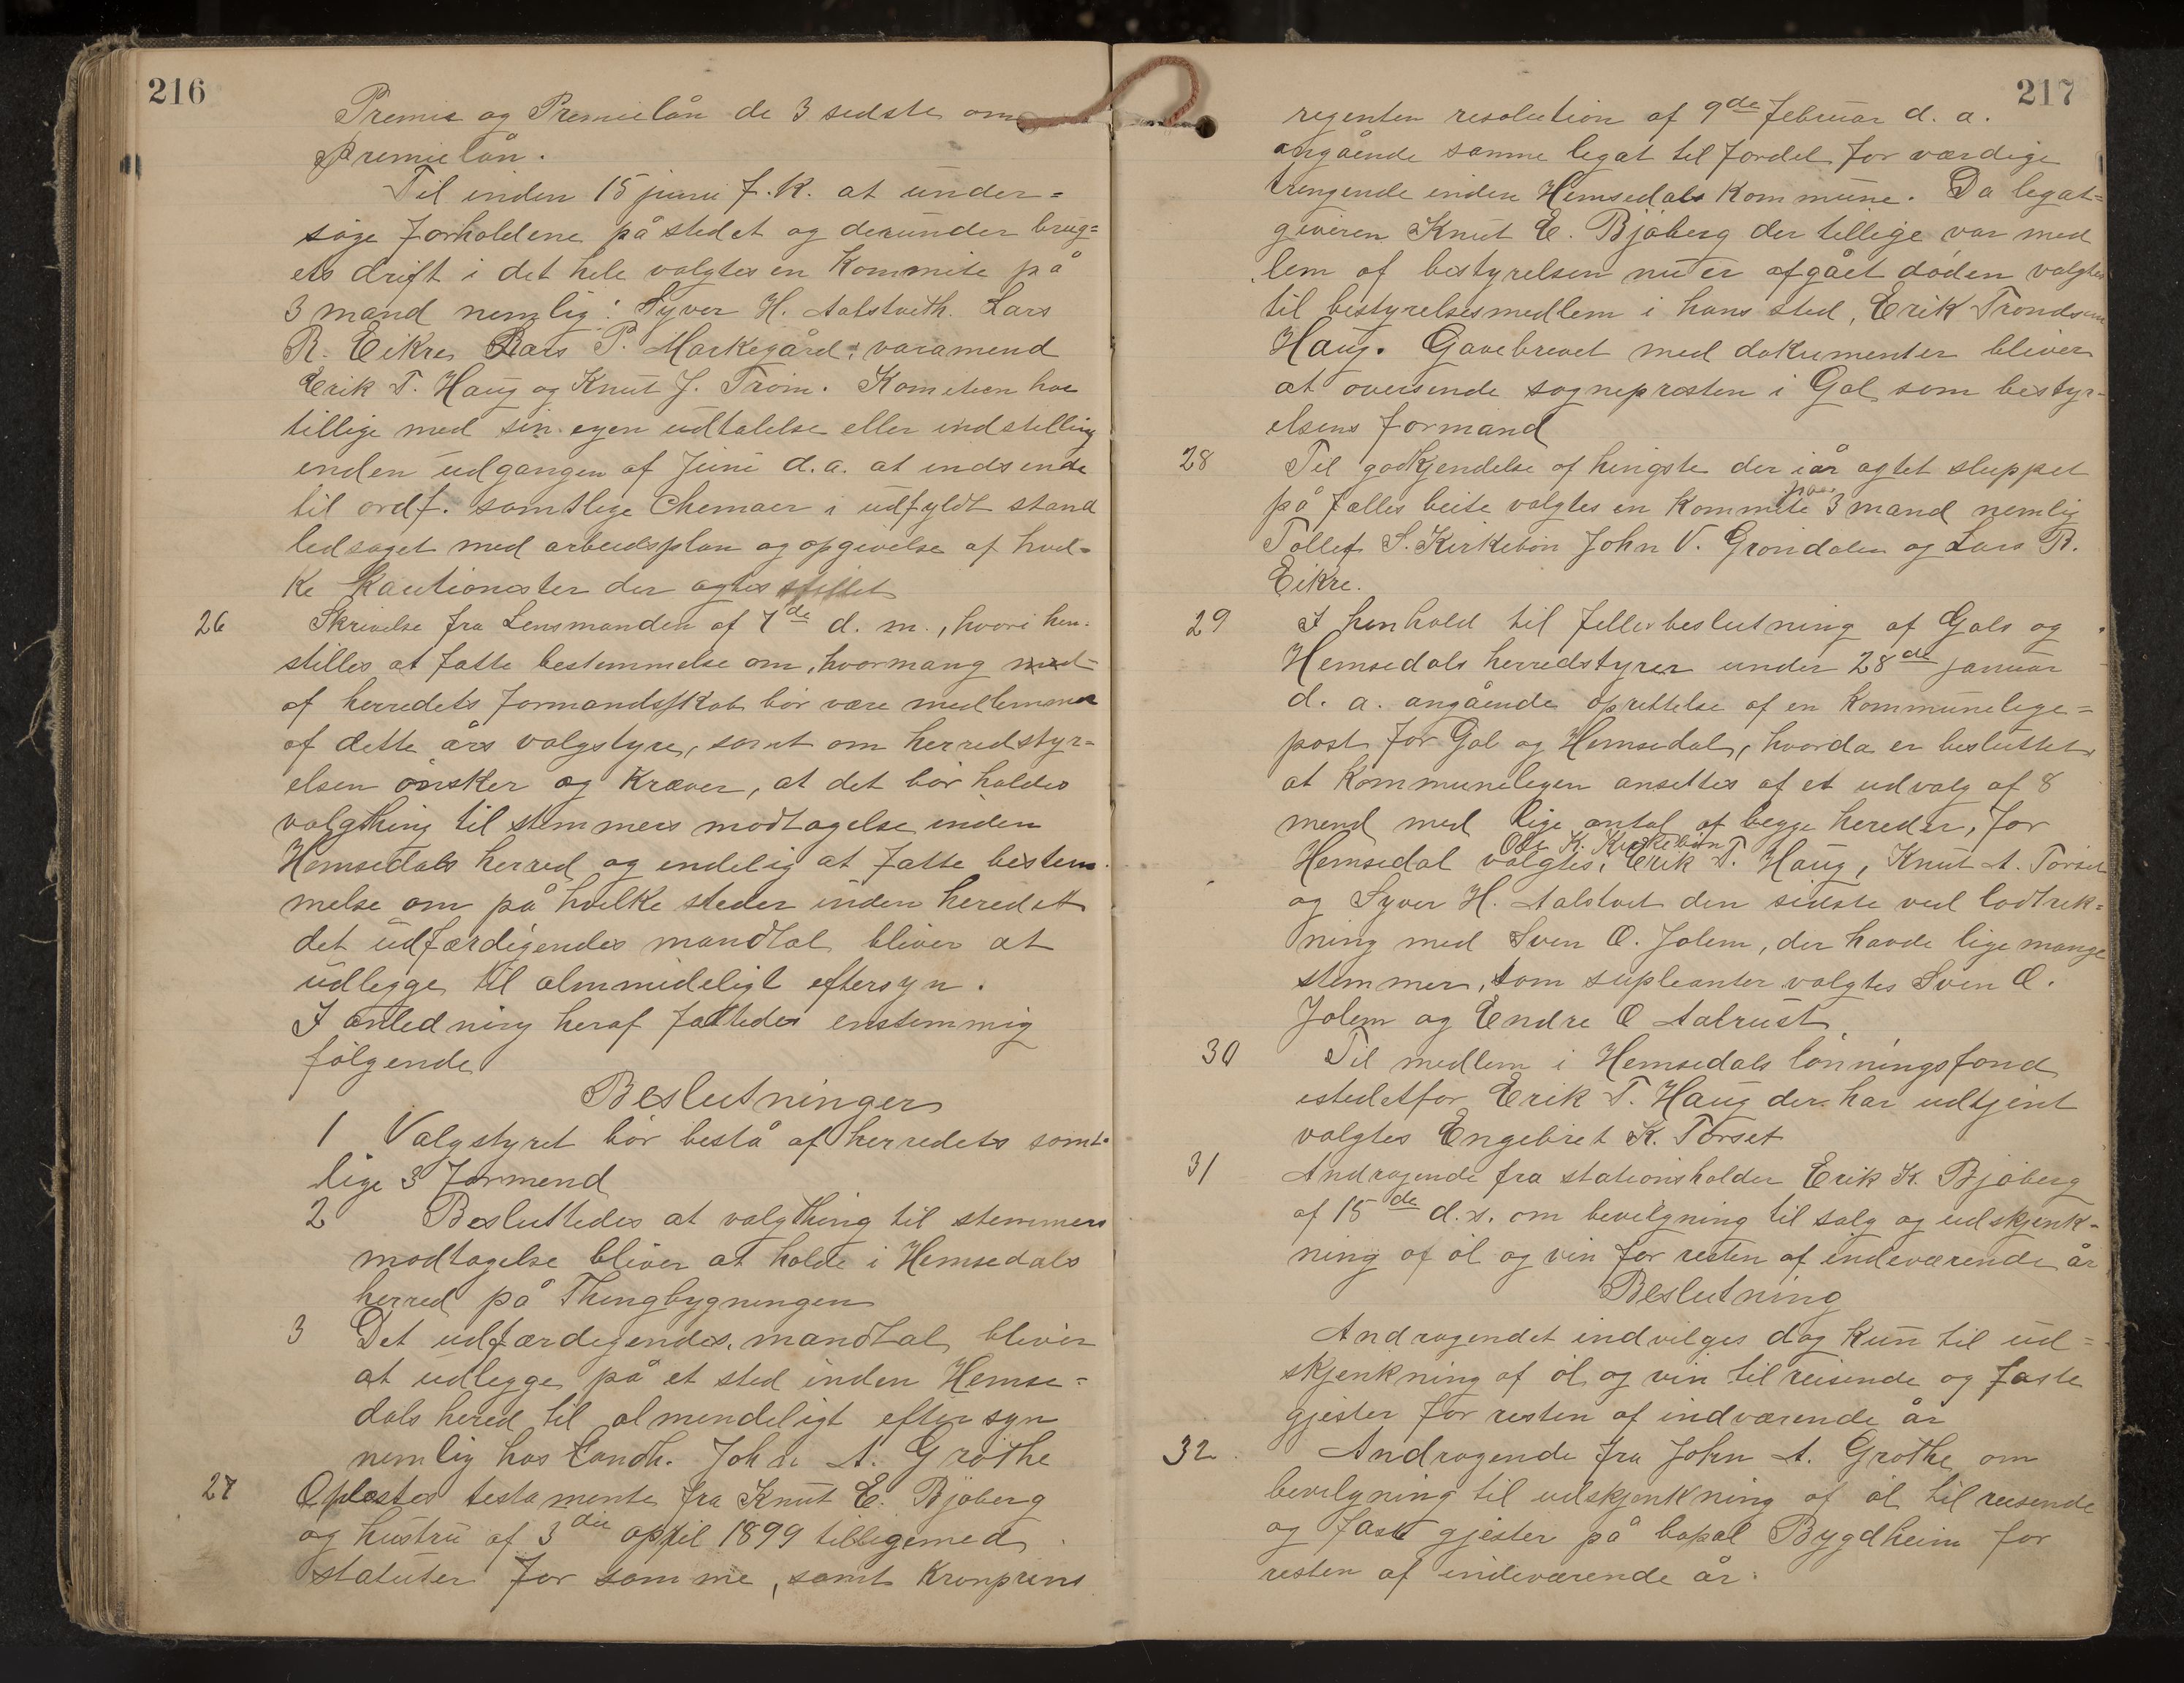 216
Premie og Premielån de 3 sidste om
Premielån.
Til inden 15 juni f. k. at under=
søge forholdene på stedet og derunder brug=
ets drift i det hele valgtes en Kommite på
3 mand nemlig: Syver H. Aalstveth. Lars
R. Eikre, Lars P. Markegård; varamend
Erik T. Haug og Knut J. Trøim. Komiteen har
tillige med sin egen udtalelse eller indstelling
inden udgangen af Juni d.a. at indsende
til ordf. samtlige Chemaer i udfyldt stand
ledsaget med arbeidsplan og opgivelse af hvil=
ke kautionister der agtes stillet
26 Skrivelse fra Lensmanden af 7de d. m., hvori hen=
stilles at fatte bestemmelse om, hvormang
af herredets formandsskab bør være medlemmer
af dette års valgstyre, samt om herredstyr=
elsen ønsker og kræver, at det bør holdes
valgthing til stemmers modtagelse inden
Hemsedals herred og endelig at fatte bestem=
melse om på hvilke steder inden heredet
det udfærdigendes mandtal bliver at
udlegge til almmideligt eftersyn.
I anledning heraf fattedes enstemmig
følgende
Beslutninger
1 Valgstyret bør bestå af herredets samt=
lige 3 formend
2 Besluttedes at valgthing til stemmers
modtagelse bliver at holde i Hemsedals
herred på Thingbygningen
3 Det udfærdigendes mandtal bliver
at udlegge på et sted inden Hemse=
dals hered til almendeligt eftersyn
nemlig hos Landh. John A. Grøthe
27 Oplæstes testamente fra Knut E. Bjøberg
og hustru af 3die april 1899 tilligemed
statuter for samme, samt Kronprins
217
regenten resolution af 9de februar d. a.
angående samme legat til fordel for værdige
trengende inden Hemsedals Kommune. Da legat=
giveren Knut E. Bjøberg der tillige var med
lem af bestyrelsen nu er afgået døden valgtes
til bestyrelsesmedlem i hans sted, Erik Trondsen
Haug. Gavebrevet med dokumenter bliver
at oversende sogneprosten i Gol som bestyr=
elsens formand
28 Til godkjendelse af hingste der iår agtet sluppet
på fælles beite valgtes en Kommite paa 3 mand nemlig
Tollef S. Kirkebøn John V. Grøndalen og Lars R.
Eikre.
29 I henhold til fellesbeslutning af Gols og
Hemsedals herredstyrer under 28de januar
d. a. angående oprettelse af en Kommunelege=
post for Gol og Hemsedal, hvorda er besluttet
at Kommunelegen ansettes af et udvalg af 8
mend med lige antal af begge hereder, for
Ole K. Kirkebøn
Hemsedal valgtes: Erik T. Haug, Knut A. Torset
og Syver H. Aalstvet den sidste ved lodtrek=
ning med Sven O. Jolem, der havde lige mange
stemmer, som supleanter valgtes Sven O.
Jolem og Endre O Aalrust.
30 Til medlem i Hemsedals lønningsfond
istedetfor Erik T. Haug der har udtjent
valgtes Engebret K. Torset
31 Andragende fra stationsholder Erik K. Bjøberg
af 15de d.s. om bevilgning til salg og udskjenk=
ning af øl og vin for resten af indeværende år
Beslutning
Andragendet indvilges dog kun til ud=
skjenkning af øl og vin til reisende og faste
gjester for resten af indværende år
32. Andragende fra John A. Grøthe om
bevilgning til udskjenkning af øl til reisende
og faste gjester på bopæl Bygdheim for
resten af indeværende år.